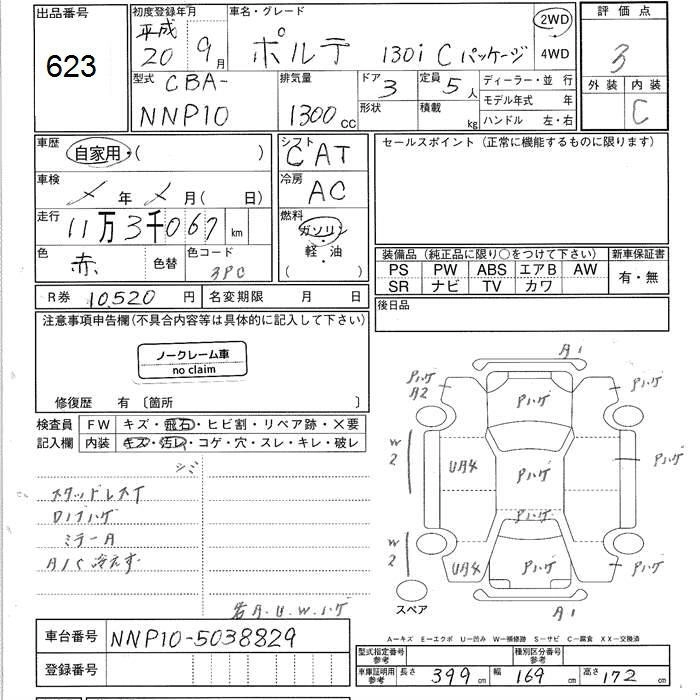 出品番号
623
初度登録年月
平成
20 9月
車名・グレード
ポルテ 130i Cパッケージ
2WD
4WD
評価点
3
外装 内装
C
型式
CBA-
NNP10
排気量
1300cc
ドア
3
定員
5人
形状
積載
kg
ディーラー・並行
モデル年式 年
ハンドル 左・右
車歴
自家用・( )
車検
年 月( 日)
走行
11万3千067km
色
赤
色替
色コード
3PC
シフト
CAT
冷房
AC
燃料
ガソリン
軽・油
( )
R券 10,520円
名変期限 月 日
セールスポイント(正常に機能するものに限ります)
装備品(純正品に限り○をつけて下さい)
新車保証書
PS PW ABS エアB AW
SR ナビ TV カワ
有・無
後日品
注意事項申告欄(不具合内容等は具体的に記入して下さい)
ノークレーム車
no claim
修復歴 有 〔箇所 〕
検査員
記入欄
FW キズ・飛石・ヒビ割・リペア跡・×要
内装 キズ・汚レ・コゲ・穴・スレ・キレ・破レ
シミ
スタッドレスT
ロゴハゲ
ミラーA
A/C冷えず
若A.U.W.ハゲ
A1
Pハゲ
A2
Pハゲ
Pハゲ
W
2
UA4
Pハゲ
Pハゲ
Pハゲ
W
2
UA4
Pハゲ
Pハゲ
スペア
A1
A―キズ E―エクボ U―凹み W―補修跡 S―サビ C―腐食 XX―交換済
車台番号 NNP10-5038829
登録番号
型式指定番号
参考
種別区分番号
参考
車庫証明用
参考
長さ 399cm 幅 169cm 高さ 172cm